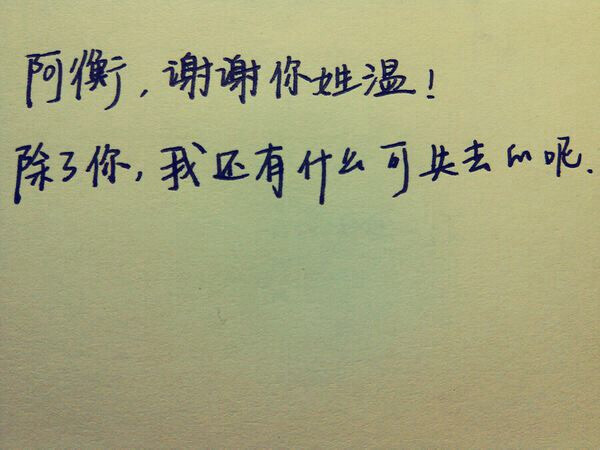 阿衡，谢谢你姓温！
除了你，我还有什么可失去的呢.